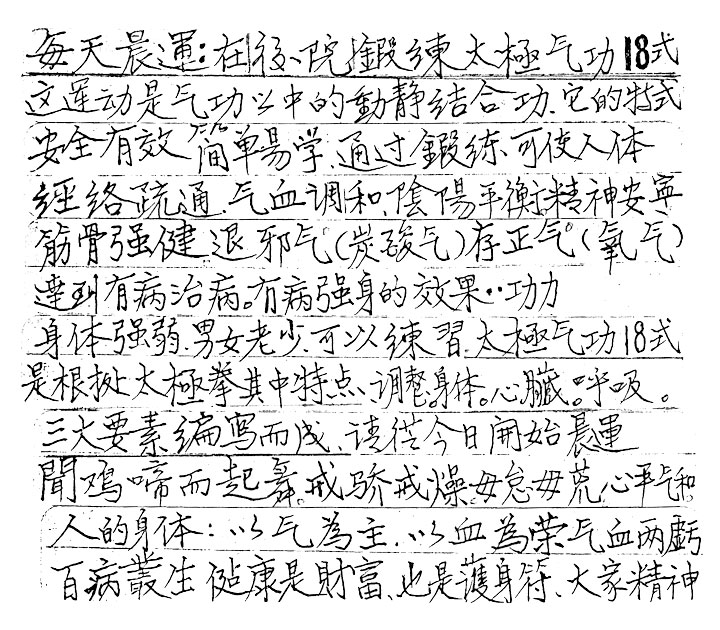 每天晨運:在後院鍛練太極气功18式
这運动是气功以中的動静结合功、它的特式
安全有效简单易学、通过鍛练、可使人体
經络疏通、气血调和、陰陽平衡、精神安寧
筋骨强健、退邪气(炭酸气)存正气(氧气)
達到有病治病。有病强身的效果··功力
身体强弱、男女老少、可以練習、太極气功18式
是根拠太極拳其中特点、调整身体。心臟。呼吸。
三大要素编寫而成、请從今日開始晨運
聞鸡啼而起舞、戒骄戒燥、毋怠毋荒心平气和。
人的身体:以气為主、以血為荣气血两虧
百病叢生健康是財富、也是護身符、大家精神